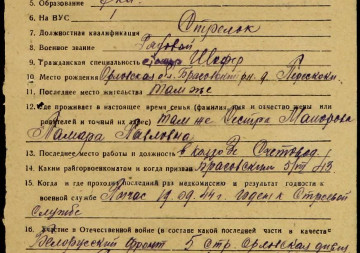 5. Образование
6. На ВУС 1
7. Должностная квалификация Стрелок
8. Военное звание Рядовой
9. Гражданская специальность Шофер
10. Место рождения Орловская обл. Брасовский р-н. д.
11. Последнее место жительства там же
12. Где проживает в настоящее время семья (фамилия, имя и отчество жены или
родителей и точный их адрес) там же Сестра Майорова
Тамара Павловна
13. Последнее место работы и должность в колхозе Счетовод.
14. Каким райгорвоенкоматом и когда призван Брасовский 5/III 43
15. Когда и где проходил последний раз медкомиссию и результат годности к
военной службе 19.09.44 г годен к строевой
Службе
16. Участие в Отечественной войне (в составе какой последней части и в качестве
Белорусский фронт 5 стр. орловская дивиз